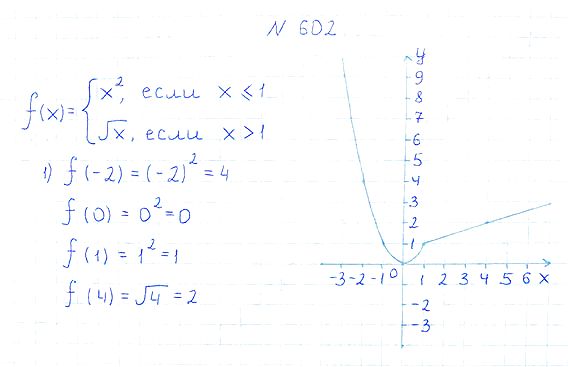 N 602
f(x)= { x², если x ⩽ 1
√x, если x > 1
1) f(-2) = (-2)² = 4
f(0) = 0² = 0
f(1) = 1² = 1
f(4) = √4 = 2
y
9
8
7
6
5
4
3
2
1
-3 -2 -1 0 1 2 3 4 5 6 x
-2
-3